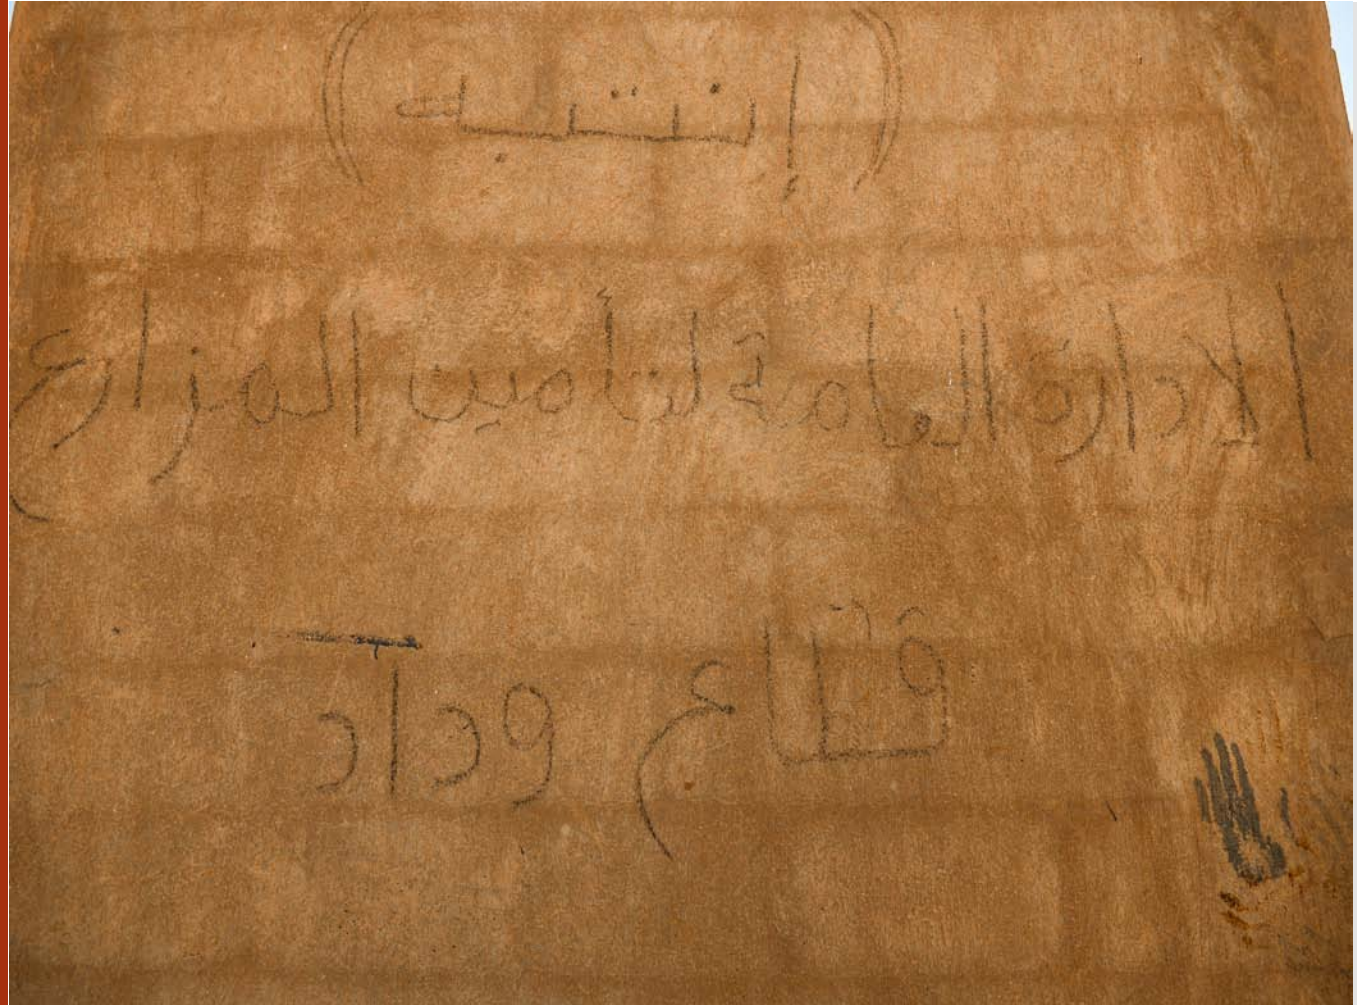 ( إنتبه )
الادارة العامة لتأمين المزارع
قطاع وداد